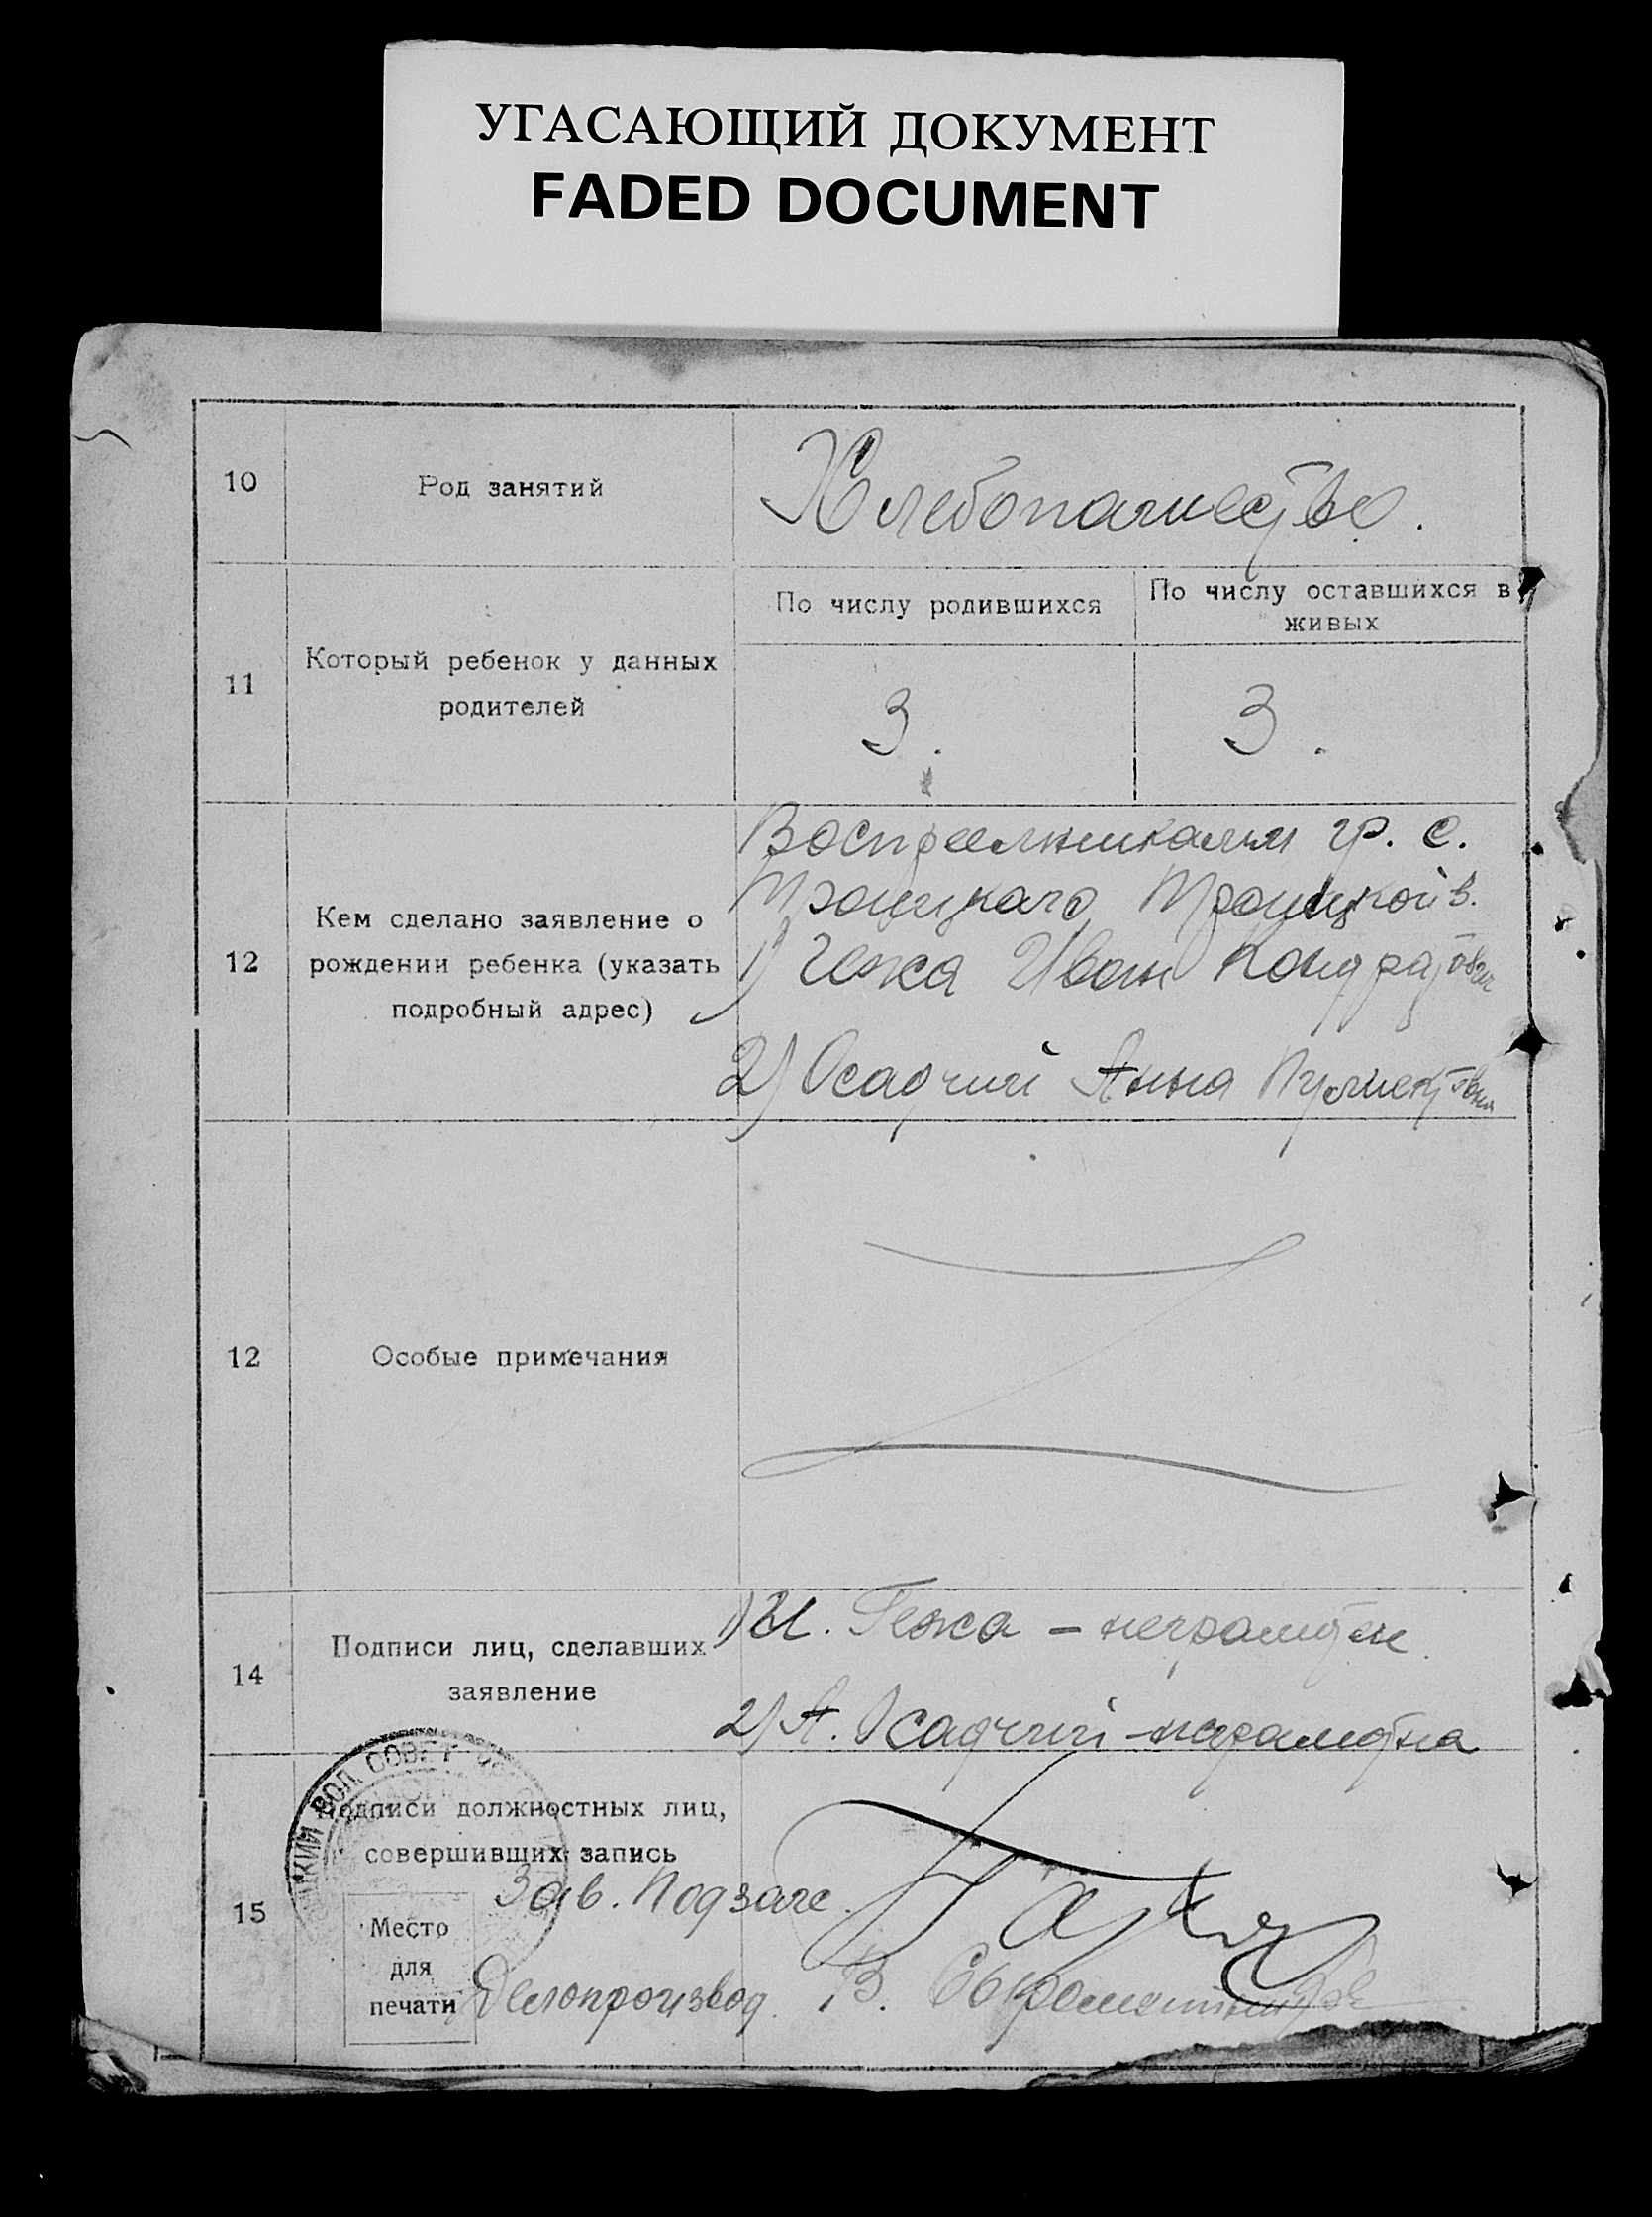 УГАСАЮЩИЙ ДОКУМЕНТ
FADED DOCUMENT
10
Род занятий
Хлебопашество.
11
Который ребенок у данных
родителей
По числу родившихся
По числу оставшихся в
живых
3.
3.
12
Кем сделано заявление о
рождении ребенка (указать
подробный адрес)
гр. с.
Троицкаго Троицкой в.
1) Гежа Иван Кондратович
2) Осадчий Анна
12
Особые примечания
14
Подписи лиц, сделавших
заявление
1) И. Гежа – неграмотен
2) А. Осадчий – неграмотна
15
Подписи должностных лиц,
совершивших запись
Зав. Подзагс.
Место
для
печати
Делопроизвод. В.
ВОЛ. СОВЕТ